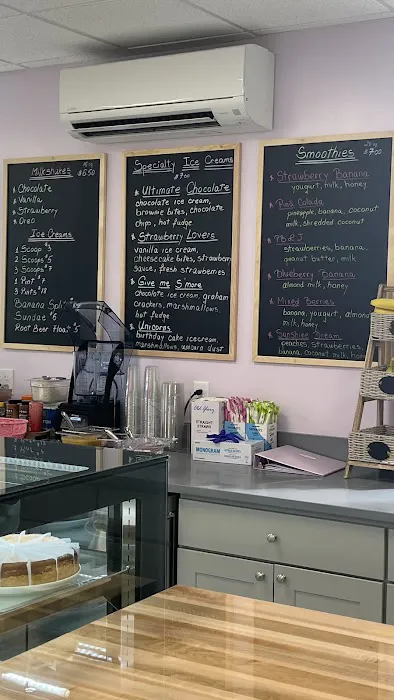 Milkshakes 16oz $6.50
* Chocolate
* Vanilla
* Strawberry
* Oreo
Ice Creams
1 Scoop $3
2 Scoops $5
3 Scoops $7
1 Pint $7
3 Pints
Banana Split
Sundae $6
Root Beer Float $5
Specialty Ice Creams
$7.00
* Ultimate Chocolate
chocolate ice cream,
brownie bites, chocolate
chips, hot fudge
* Strawberry Lovers
vanilla ice cream,
cheesecake bites, strawberry
sauce, fresh strawberries
* Give me S'more
chocolate ice cream, graham
crackers, marshmallows,
hot fudge
* Unicorns
birthday cake icecream,
marshmallows, unicorn dust
Smoothies $7.00
* Strawberry Banana
yougurt, milk, honey
* Pina Colada
pineapple, banana, coconut
milk, shredded coconut
* PB&J
strawberries, banana,
peanut butter, milk
* Blueberry Banana
almond milk, honey
* Mixed Berries
banana, yougurt, almond
milk, honey
* Sunshine Dream
peaches, strawberries,
banana, coconut milk, honey
STRAIGHT
STRAWS
MONOGRAM